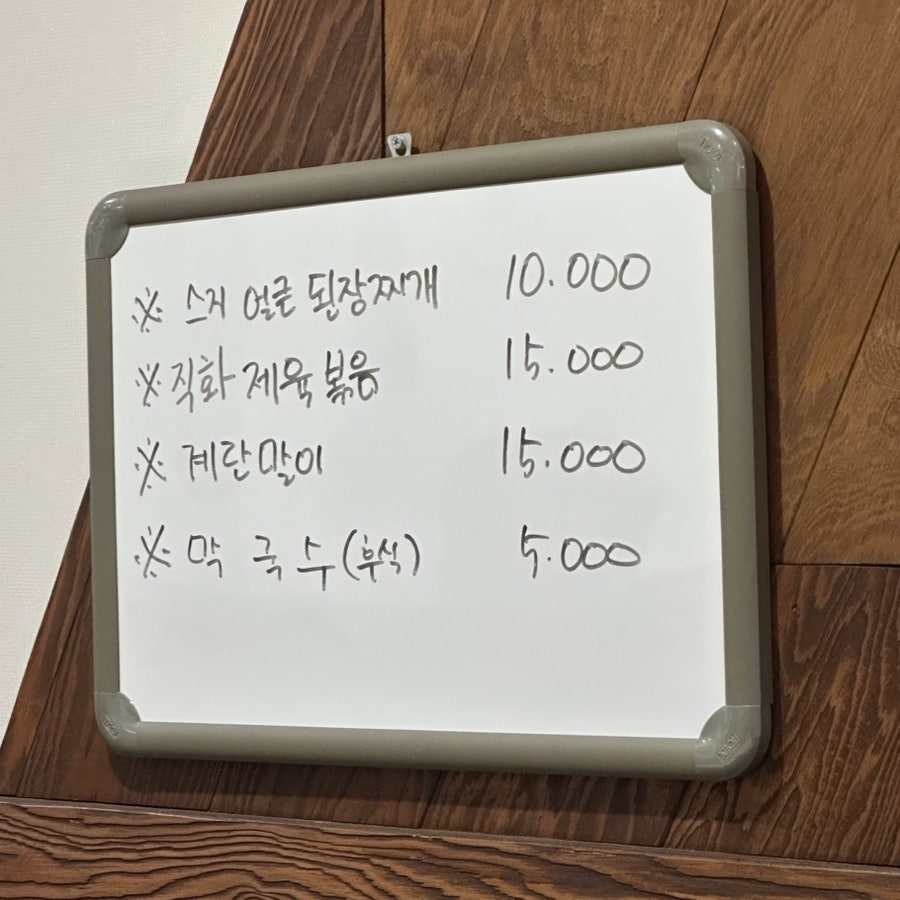 ※ 스지 얼큰 된장찌개 10.000
※ 직화 제육볶음 15.000
※ 계란말이 15.000
※ 막국수(후식) 5.000